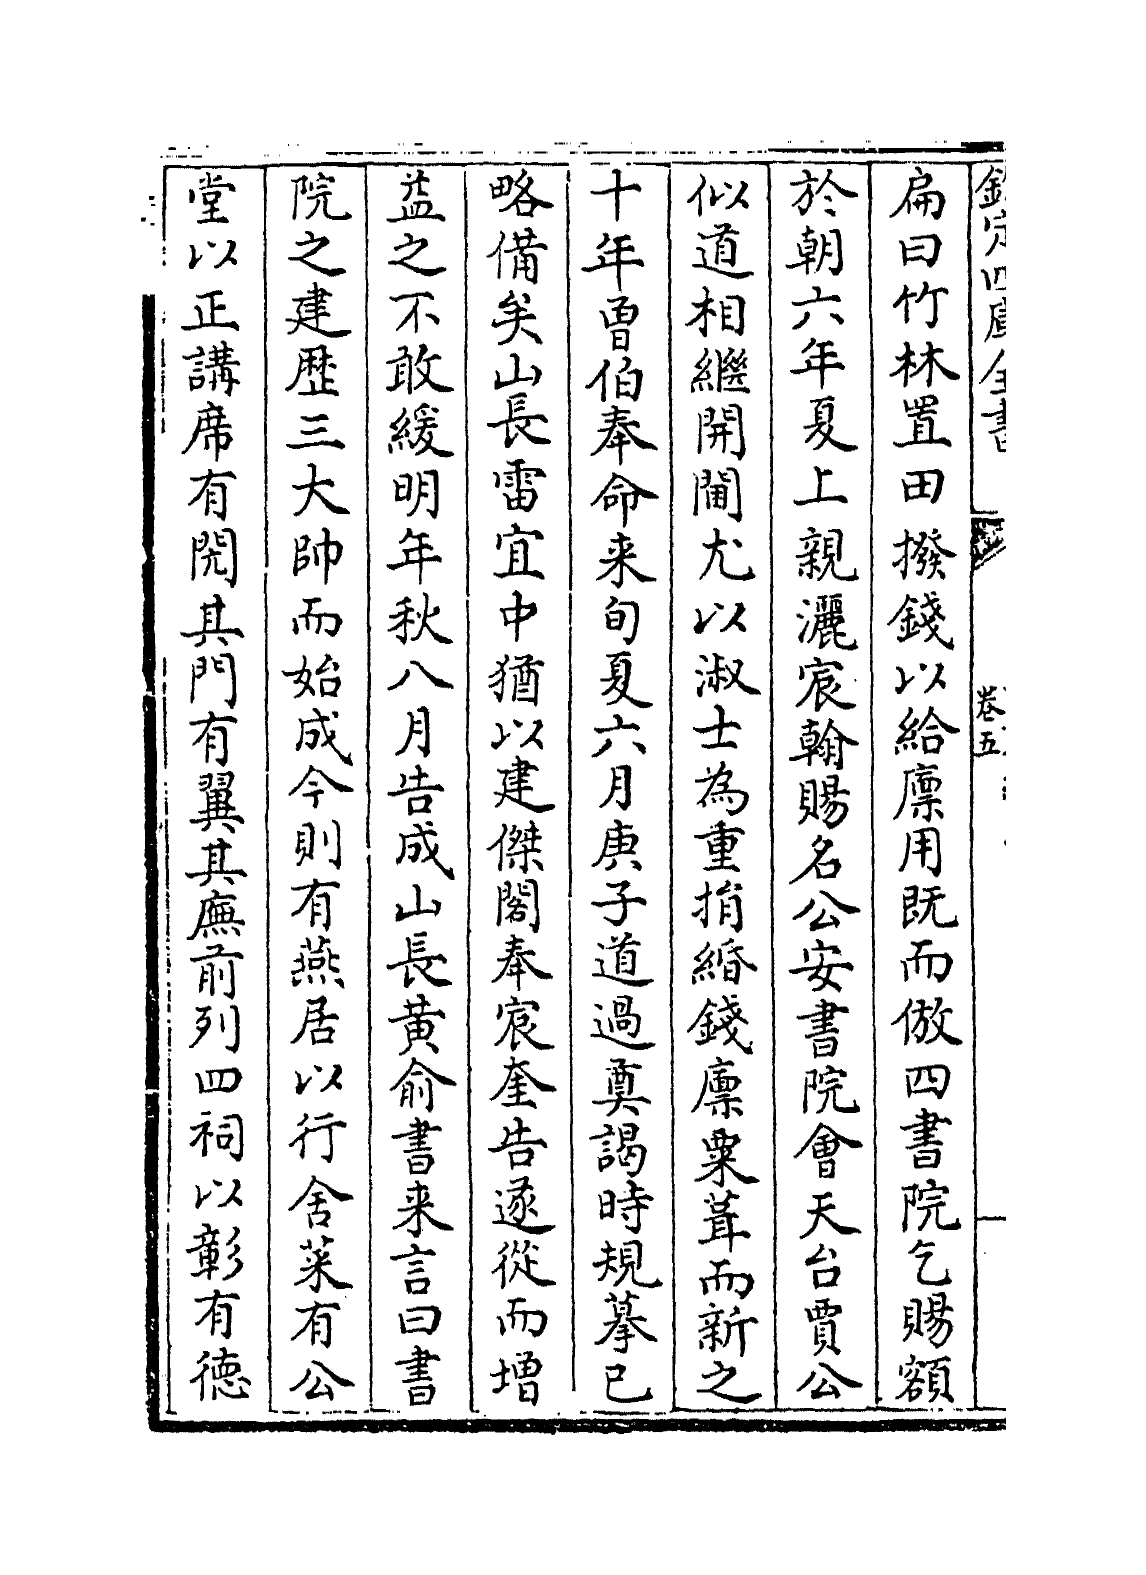 欽定四庫全書
卷五
扁曰竹林置田撥錢以給廪用既而倣四書院乞賜額
於朝六年夏上親灑宸翰賜名公安書院會天台賈公
似道相繼開閫尤以淑士為重捐緡錢廪粟葺而新之
十年曽伯奉命来旬夏六月庚子道過奠謁時規摹已
略備矣山長雷宜中猶以建傑閣奉宸奎告遂從而增
益之不敢緩明年秋八月告成山長黄俞書来言曰書
院之建歴三大帥而始成今則有燕居以行舍菜有公
堂以正講席有閌其門有翼其廡前列四祠以彰有德